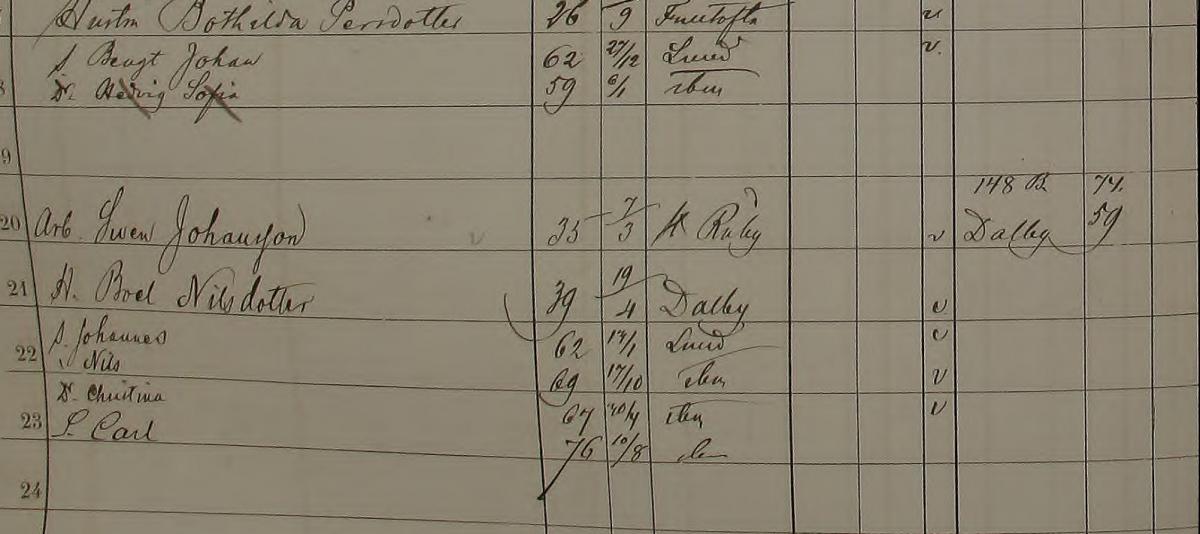 Hustru Bothilda Persdotter 26 9
S Bengt Johan 62 27/12 Lund v.
8 Dr. Hedvig Sofia 59 6/1 ibm
9
148 B 74.
20 Arb. Swen Johansson v 35 7/3 v Dalby 59
21 H. Boel Nilsdotter 39 19/4 Dalby v
S. Johannes 62 14/1 Lund v
22 Nils 69 17/10 ibm v
Dr. Christina 67 ibm v
23 S. Carl 76 10/8 ibm
24